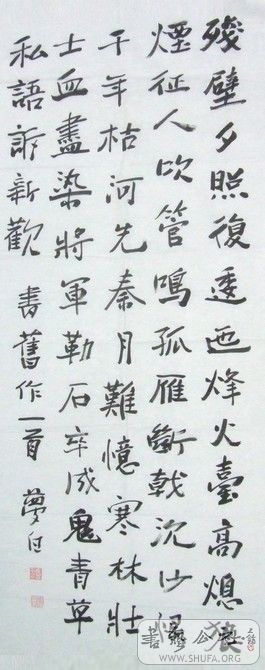 殘壁夕照復逶迤烽火臺高熄狼
煙征人吹管鳴孤雁斷戟沈沙
千年枯河先秦月難憶寒林壯
士血盡染將軍勒石卒成鬼青草
私語訴新歡 書舊作一首 夢
書藝公社
WWW.SHUFA.ORG